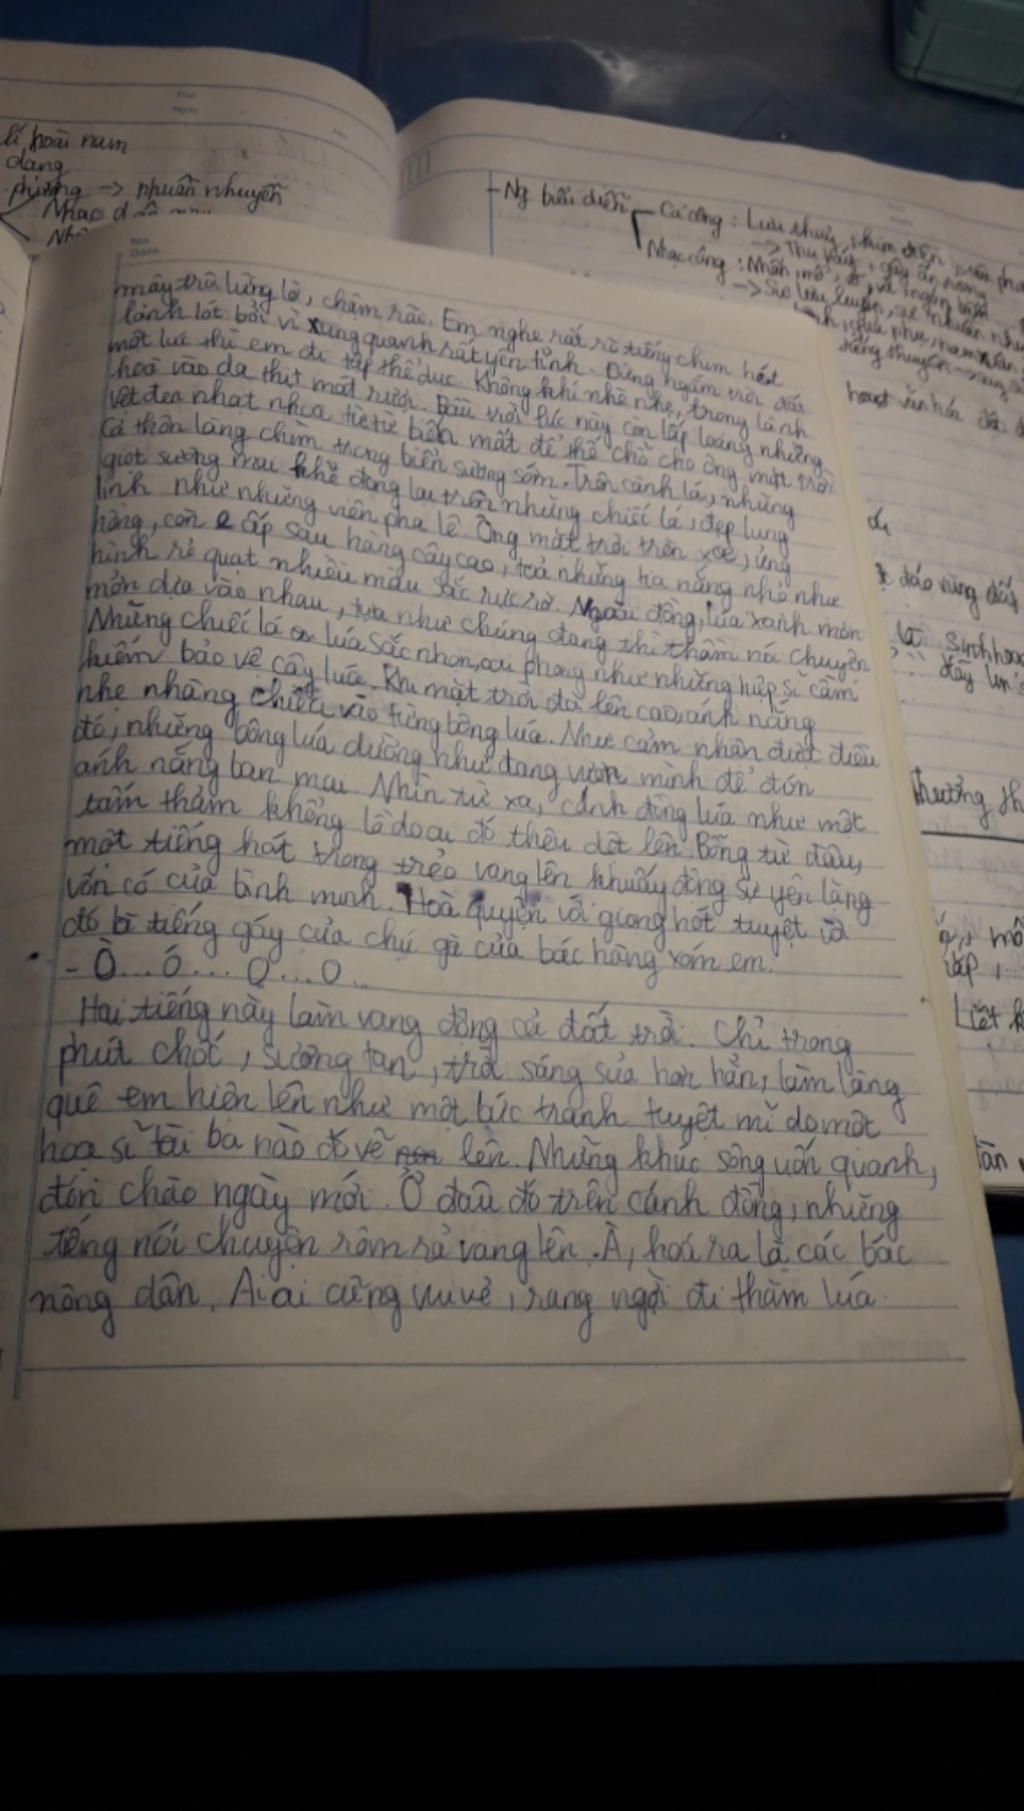 lí hoài nam
dang
phương → nhuần nhuyễn
- Ng biểu diễn
Ca công : Lưu thuỷ,
Nhạc công : Nhấn, mổ,
mây trôi lững lờ, chậm rãi. Em nghe rất rõ tiếng chim hót
lảnh lót bởi vì xung quanh rất yên tĩnh. Đứng ngắm trời đất
một lúc thì em đi tập thể dục. Không khí nhè nhẹ, trong lành
hoà vào da thịt mát rượi. Bầu trời lúc này còn lấp loáng những
vệt đen nhạt nhoà từ từ biến mất để thế chỗ cho ông mặt trời
Cả thôn làng chìm trong biển sương sớm. Trên cành lá, những
giọt sương mai khẽ đọng lại trên những chiếc lá, đẹp lung
linh như những viên pha lê. Ông mặt trời tròn xoe, ửng
hồng, còn e ấp sau hàng cây cao, toả những tia nắng nhỏ như
hình rẻ quạt nhiều màu sắc rực rỡ. Ngoài đồng, lúa xanh mơn
mởn dựa vào nhau, tựa như chúng đang thì thầm nói chuyện
Những chiếc lá lúa sắc nhọn, oai phong như những hiệp sĩ cầm
kiếm bảo vệ cây lúa. Khi mặt trời đã lên cao, ánh nắng
nhẹ nhàng chiếu vào từng bông lúa. Như cảm nhận được điều
đó, những bông lúa dường như đang vươn mình để đón
ánh nắng ban mai. Nhìn từ xa, cánh đồng lúa như một
tấm thảm khổng lồ do ai đó thêu dệt lên. Bỗng từ đâu,
một tiếng hát trong trẻo vang lên khuấy động sự yên lặng
vốn có của bình minh. Hoà quyện với giọng hót tuyệt vời
đó là tiếng gáy của chú gà của bác hàng xóm em.
- Ò...ó...o...o..
Hai tiếng này làm vang động cả đất trời. Chỉ trong
phút chốc, sương tan, trời sáng sủa hơn hẳn, làm làng
quê em hiện lên như một bức tranh tuyệt mĩ do một
hoạ sĩ tài ba nào đó vẽ lên. Những khúc sông uốn quanh,
đón chào ngày mới. Ở đâu đó trên cánh đồng, những
tiếng nói chuyện rôm rả vang lên. À, hoá ra là các bác
nông dân. Ai ai cũng vui vẻ, rạng ngời đi thăm lúa.